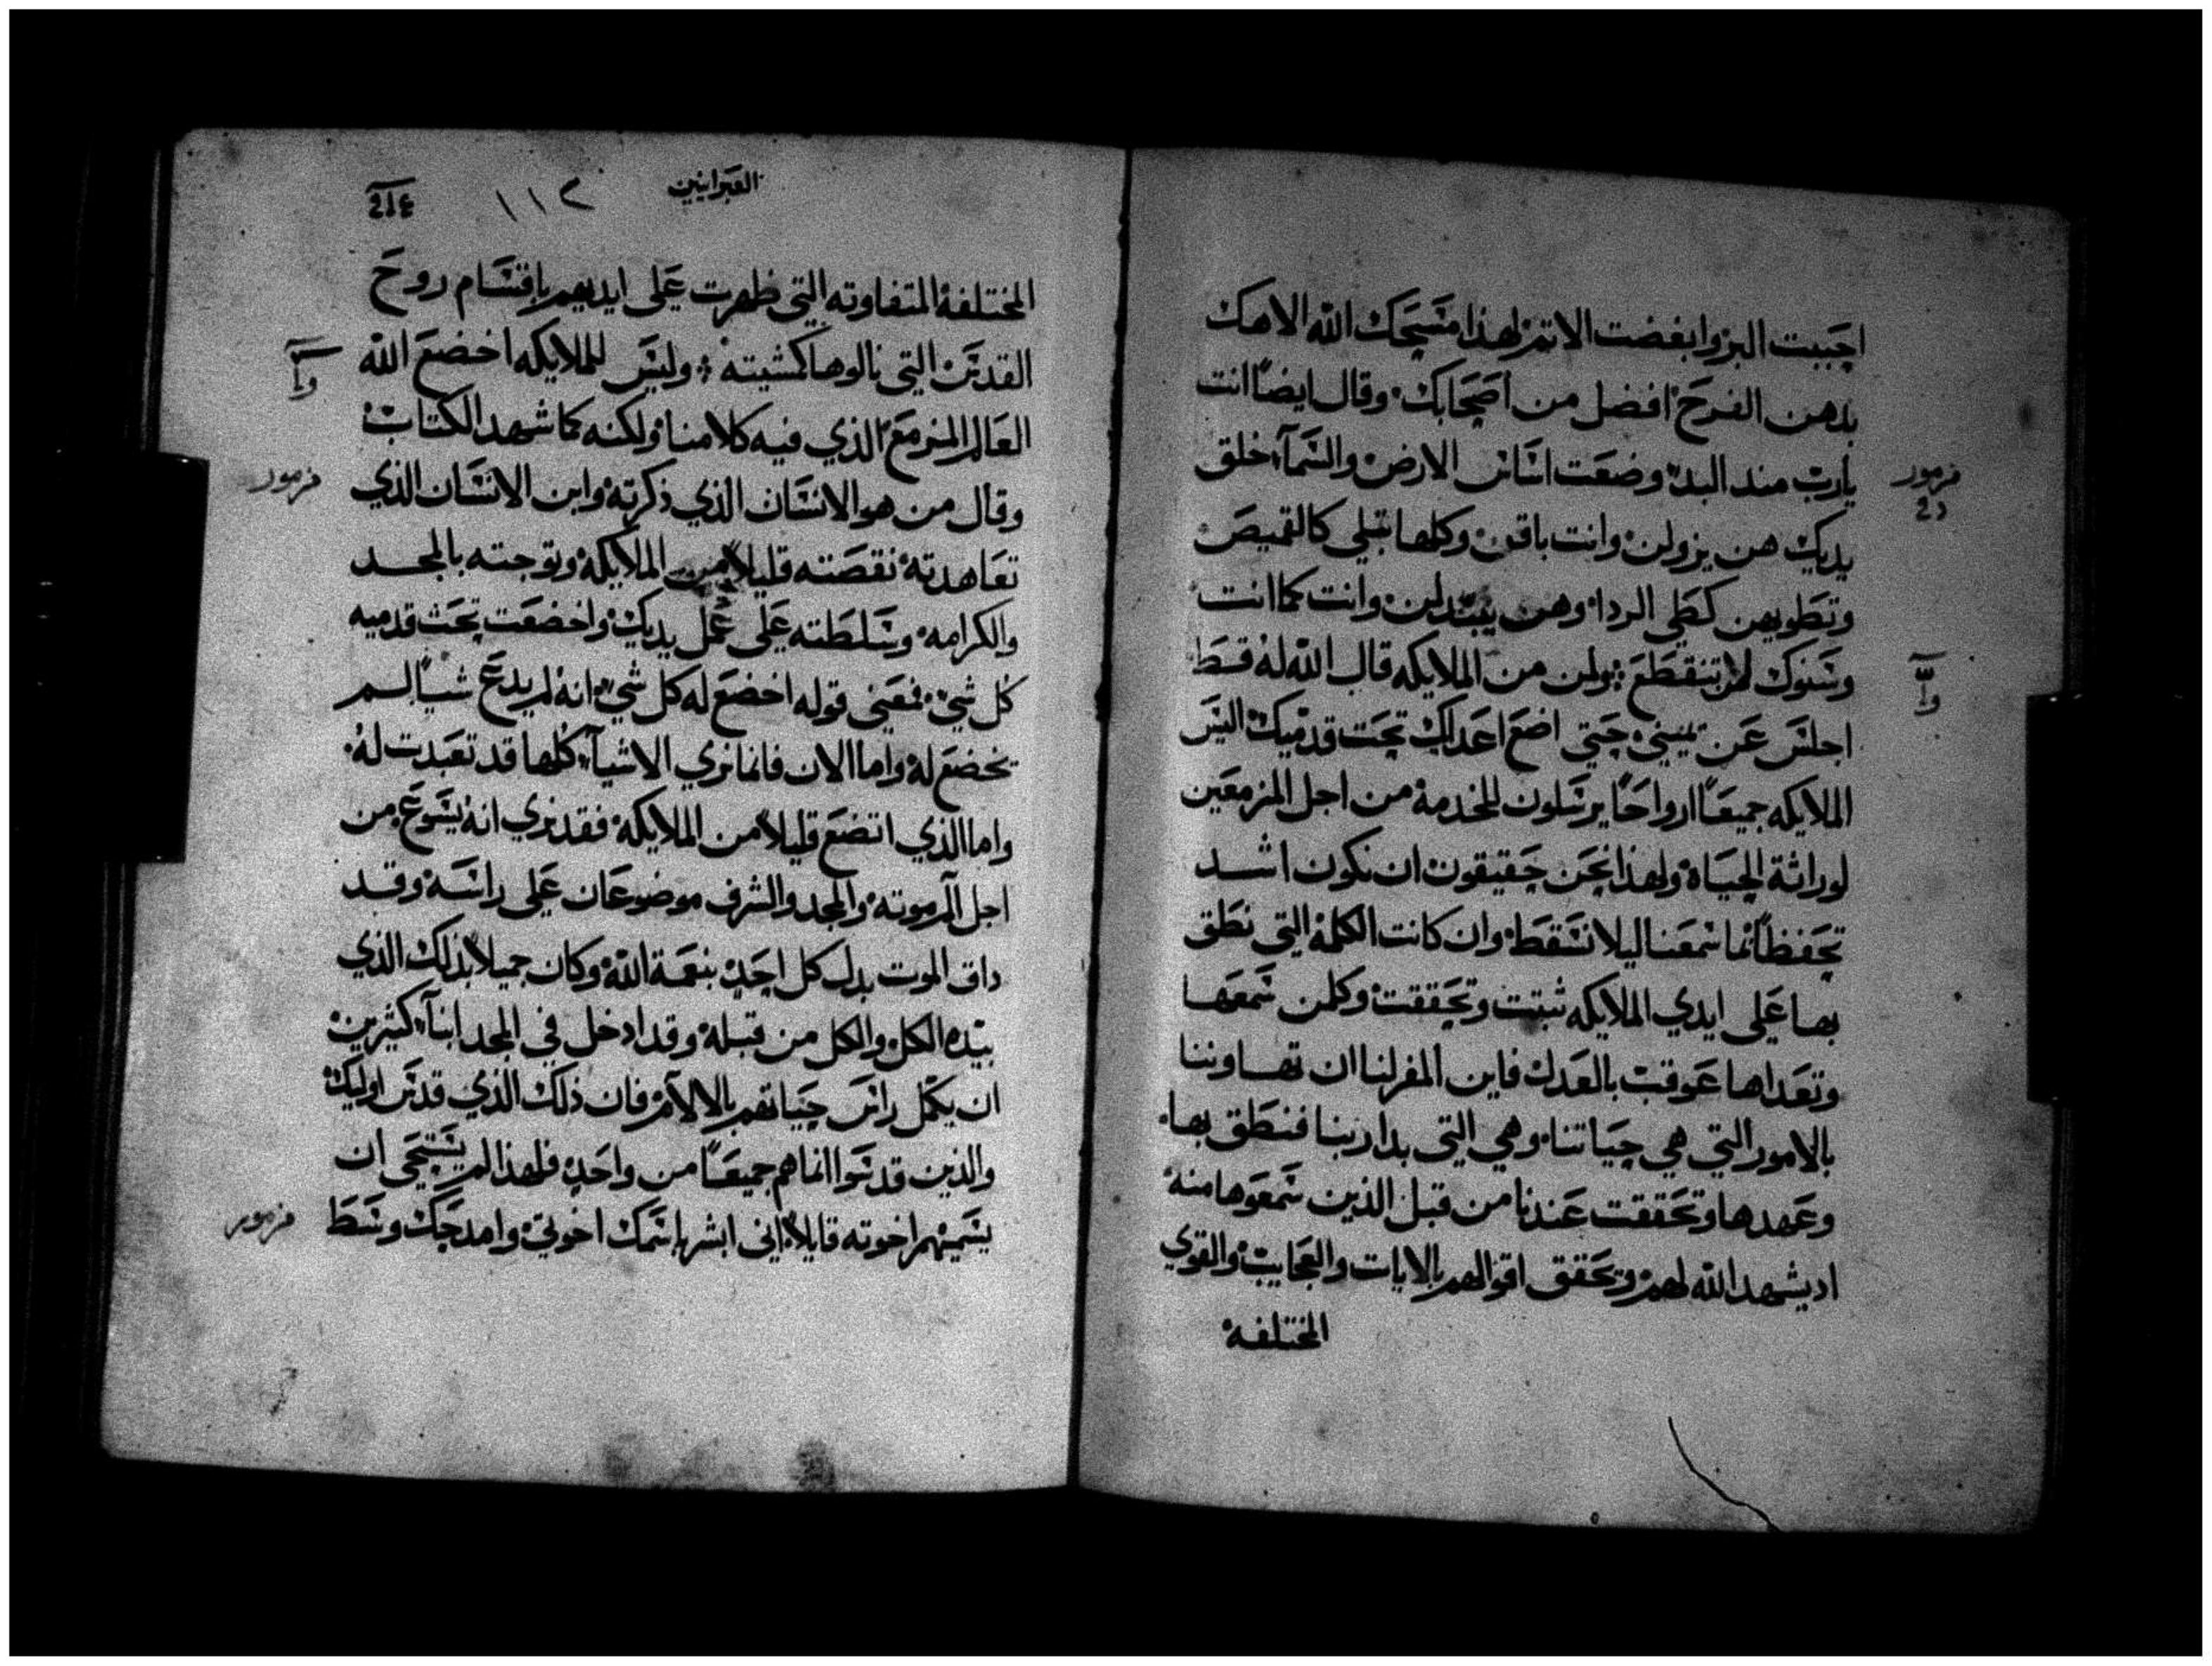 احببت البر وابغضت الاثم لهذا مسحك الله الاهك
بدهن الفرح افضل من اصحابك وقال ايضًا انت
يارب منذ البدء وضعت اساس الارض والسمآء خلق
مزمور
يديك هن يزولن وانت باقٍ وكلها تبلى كالقميص
وتطويهن كطي الردا وهن يتبدلن وانت كما انت
وسنوك لن تنقطع ولمن من الملايكه قال الله له قط
اجلس عن يميني حتي اضع اعداك تحت قدميك اليس
الملايكه جميعًا ارواحًا يرسلون للخدمة من اجل المزمعين
لوراثة الحياه ولهذا نحن حقيقون ان نكون اشد
تحفظًا بما سمعنا ليلا نسقط وان كانت الكلمة التي نطق
بها على ايدي الملايكه ثبتت وتحققت وكلمن سمعها
وتعداها عوقب بالعدل فاين المفر لنا ان تهاوننا
بالامور التي هي حياتنا وهي التي بدا ربنا فنطق بها
وعهدها وتحققت عندنا من قبل الذين سمعوها منه
اد يشهد الله لهم وتحقق اقوالهم بالايات والعجايب والقوي
المختلفة
العبرانيين
١١٢
المختلفة المتفاوته التي ظهرت على ايديهم باقسام روح
القدس التي نالوها كمشيته وليس للملايكه اخضع الله
العالم المزمع الذي فيه كلامنا ولكنه كما شهد الكتاب
وقال من هو الانسان الذي ذكرته وابن الانسان الذي
مزمور
تعاهدته نقصته قليلاً من الملايكة وتوجته بالمجد
والكرامه وسلطته على عمل يديك واخضعت تحت قدميه
كل شي فمعني قوله اخضع له كل شي انه لم يدع شيًا لم
يخضع له واما الان فانما نري الاشيآء كلها قد تعبدت له
واما الذي اتضع قليلاً من الملايكة فقد نري انه يسوع من
اجل آلم موته والمجد والشرف موضوعان على راسه وقد
داق الموت بدل كل احد بنعمة الله وكان جميلاً بذلك الذي
بيده الكل والكل من قبله وقد ادخل في المجد ابنآء كثيرين
ان يكمل راس حياتهم بالالام فان ذلك الذي قدس اوليك
والذين قدسوا انما هم جميعًا من واحد فلهذا لم يستحى ان
يسميهم اخوته قايلاً اني ابشر باسمك اخوتي وامدحك وسط
مزمور